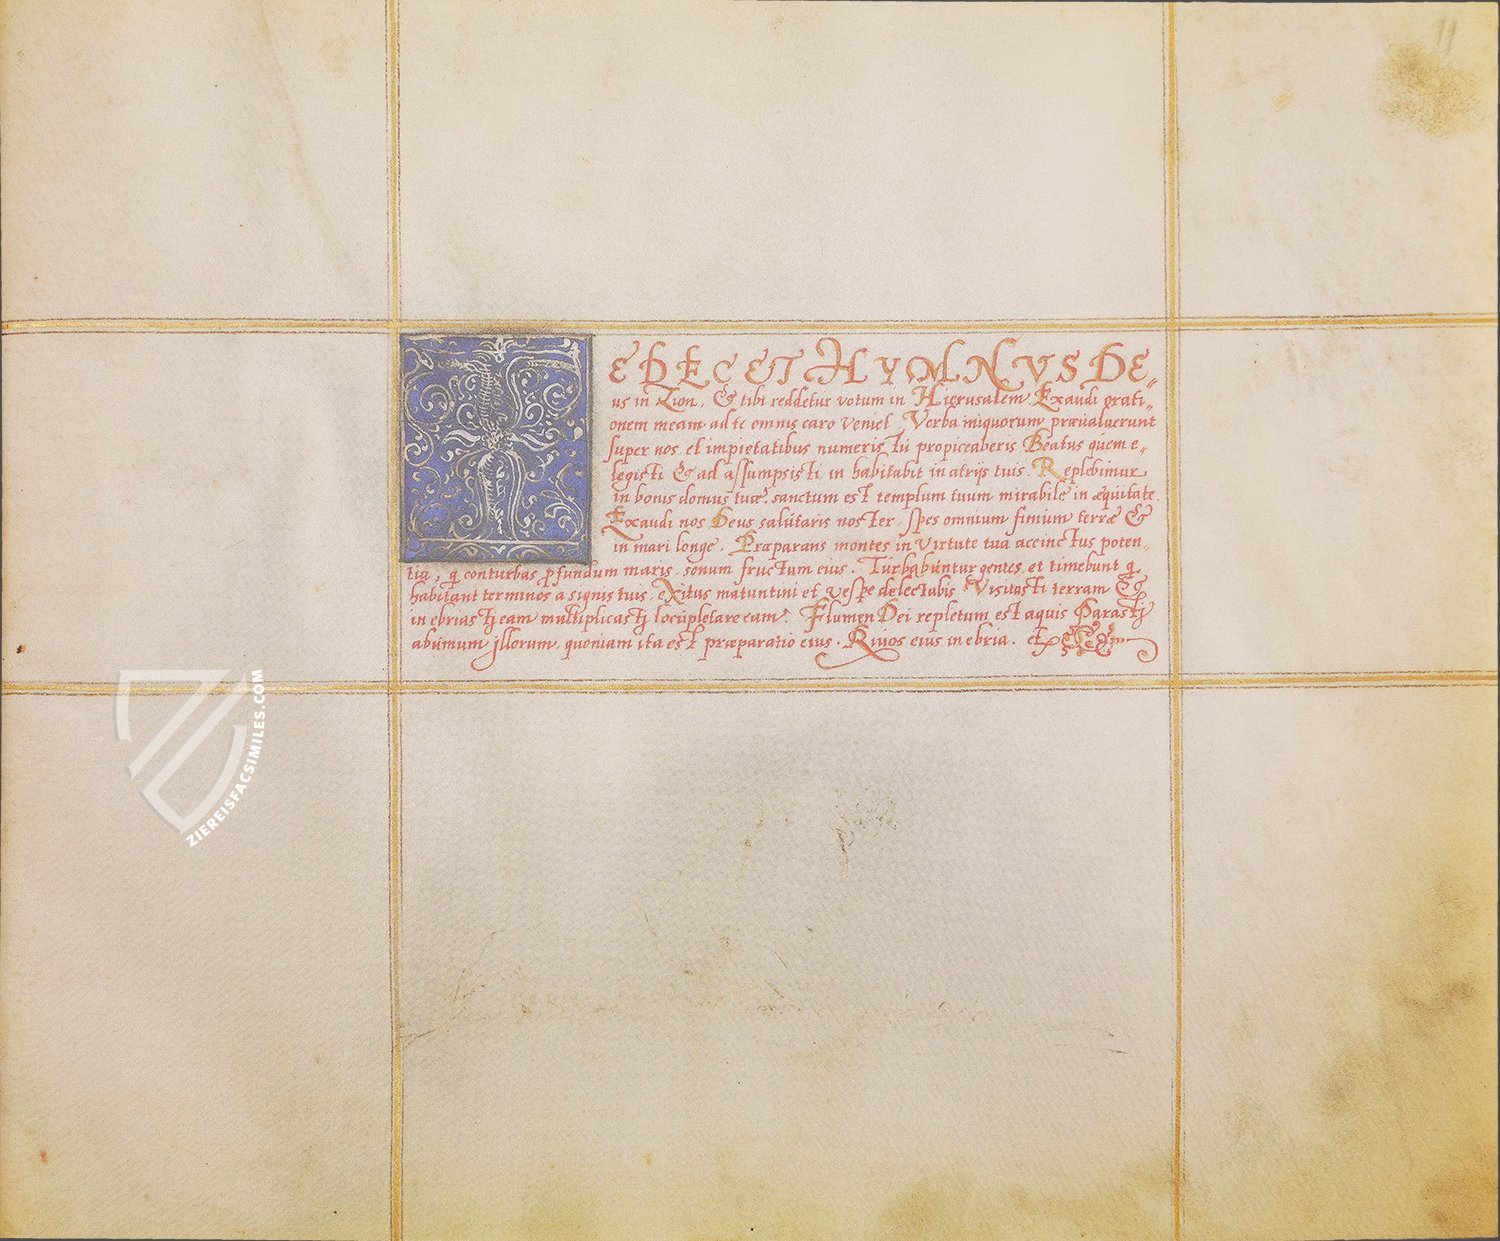 11
T
E DECET HYMNVS DE„
us in Zion, & tibi reddetur votum in Hierusalem Exaudi orati„
onem meam ad te omnis caro veniet Verba iniquorum prævaluerunt
super nos et impietatibus numeris Tu propiceaberis Beatus quem e„
legisti & ad assumpsisti, in habitabit in atrijs tuis. Replebimur
in bonis domus tuæ, sanctum est templum tuum mirabile in æquitate.
Exaudi nos Deus salutaris noster, spes omnium finium terræ &
in mari longe. Præparans montes in virtute tua accinctus poten„
tia, q̃ conturbas p̃fundum maris sonum fructum eius. Turbabuntur gentes, et timebunt q̃
habitant terminos a signis tuis, eXitus matuntini et vespe delectabis Visitasti terram &
in ebriastj eam multiplicastj locupletare eam. Flumen Dei repletum est aquis Parastj
abumum jllorum, quoniam ita est præparatio eius. Riuos eius inebria. et
ZIEREISFACSIMILES.COM